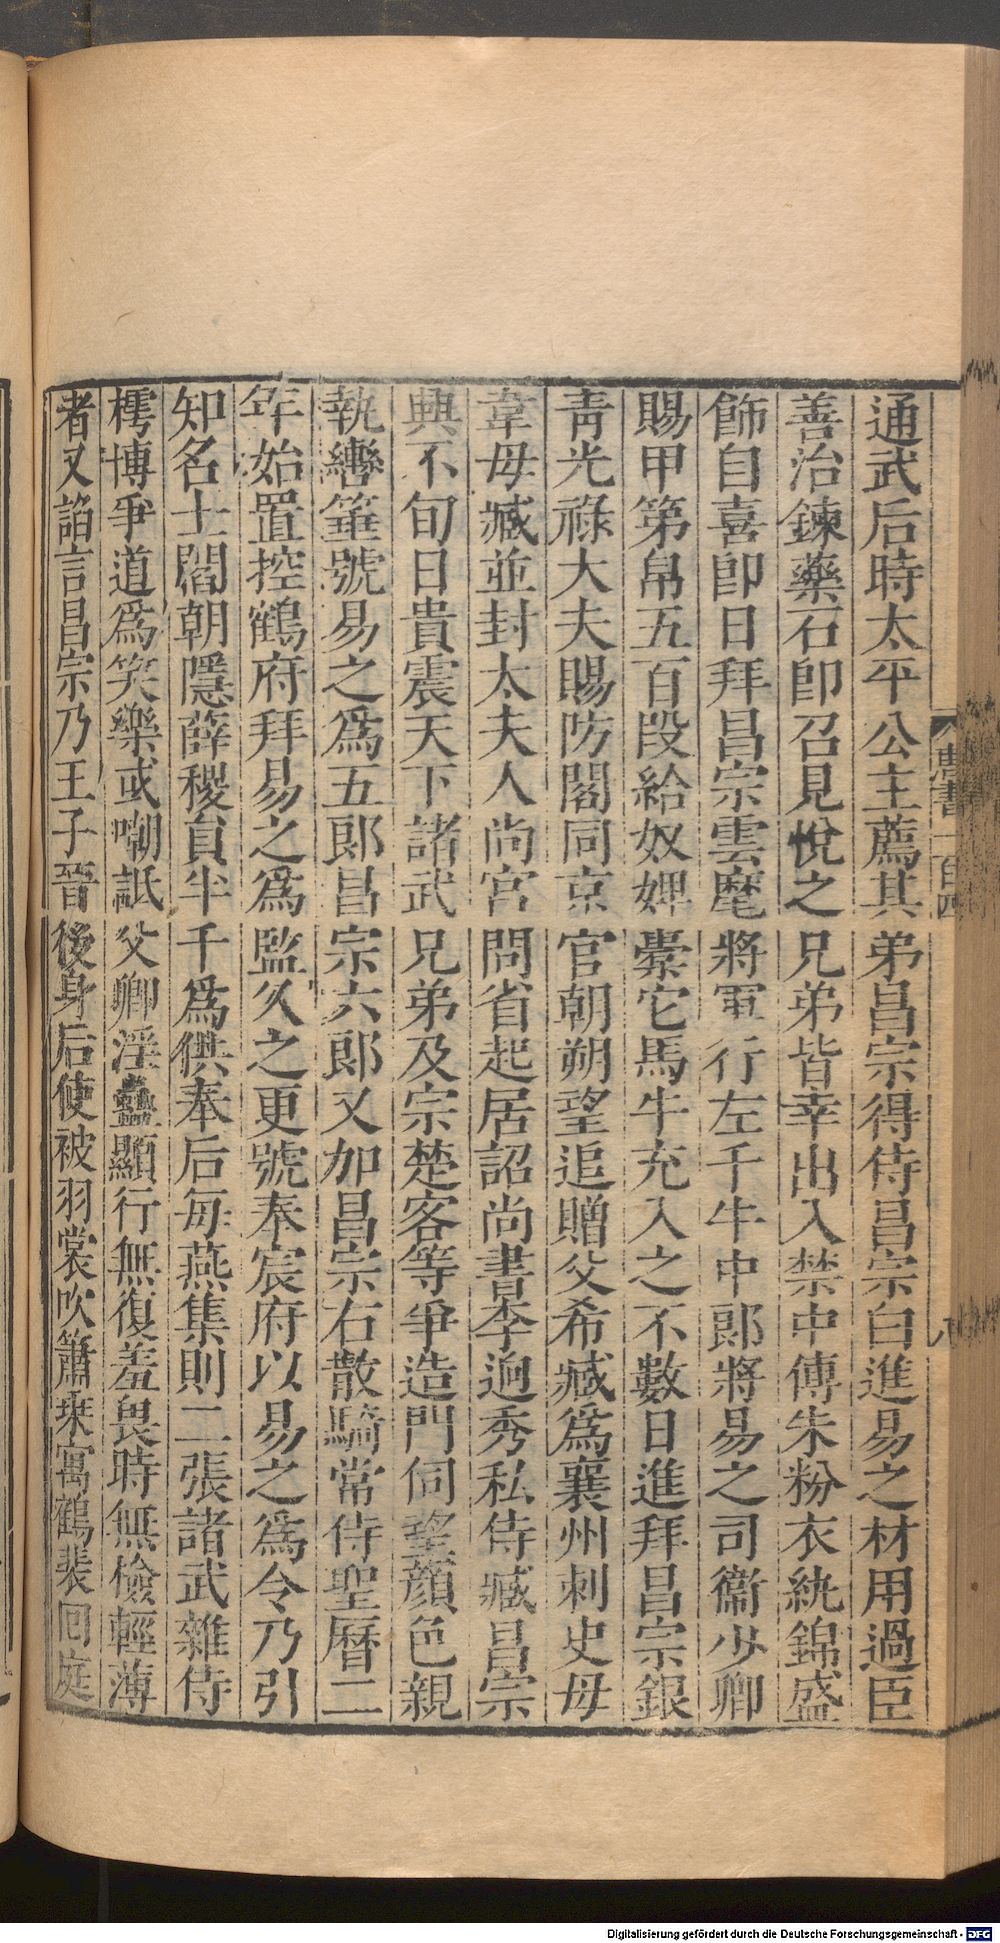 通武后時太平公主薦其弟昌宗得侍昌宗白進易之材用過臣
善治鍊藥石卽召見悅之兄弟皆幸出入禁中傅朱粉衣紈錦盛
飾自喜卽日拜昌宗雲麾將軍行左千牛中郞將易之司衞少卿
賜甲第帛五百段給奴婢橐它馬牛充入之不數日進拜昌宗銀
靑光祿大夫賜防閤同京官朝朔望追贈父希臧爲襄州刺史母
韋母臧並封太夫人尚宮問省起居詔尚書李迥秀私侍臧昌宗
興不旬日貴震天下諸武兄弟及宗楚客等爭造門伺望顏色親
執轡箠號易之爲五郞昌宗六郞又加昌宗右散騎常侍聖曆二
年始置控鶴府拜易之爲監久之更號奉宸府以易之爲令乃引
知名士閻朝隱薛稷員半千爲供奉后每燕集則二張諸武雜侍
樗博爭道爲笑樂或嘲詆公卿淫蠱顯行無復羞畏時無檢輕薄
者又諂言昌宗乃王子晉後身后使被羽裳吹簫乘寓鶴裴回庭
唐書一百四
八
Digitalisierung gefördert durch die Deutsche Forschungsgemeinschaft - DFG